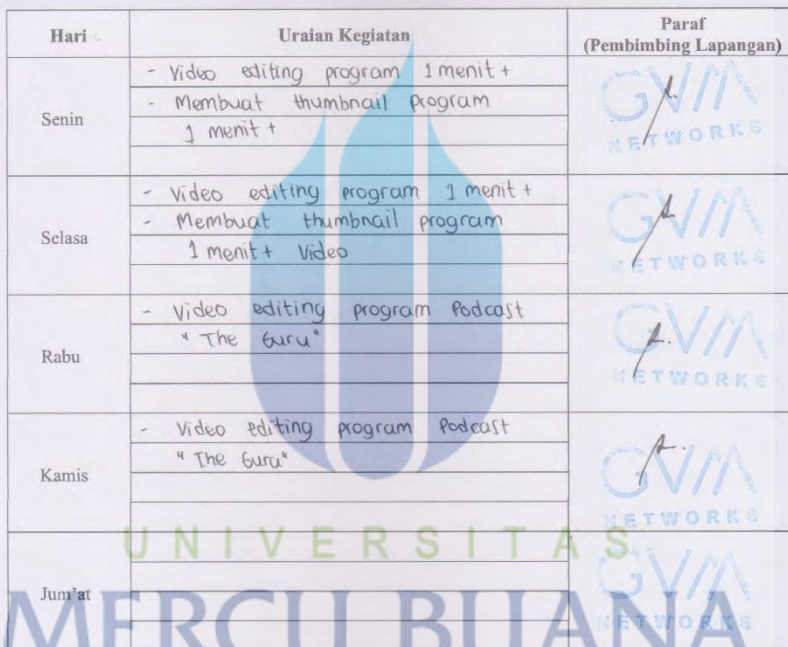 Hari Uraian Kegiatan Paraf
(Pembimbing Lapangan)
Senin
- Video editing program 1 menit +
- Membuat thumbnail program
1 menit +
GVM
NETWORKS
Selasa
- Video editing program 1 menit +
- Membuat thumbnail program
1 menit + Video
GVM
NETWORKS
Rabu
- Video editing program Podcast
"The Guru"
GVM
NETWORKS
Kamis
- Video editing program Podcast
"The Guru"
GVM
NETWORKS
Jum'at
GVM
NETWORKS
UNIVERSITAS
MERCU BUANA